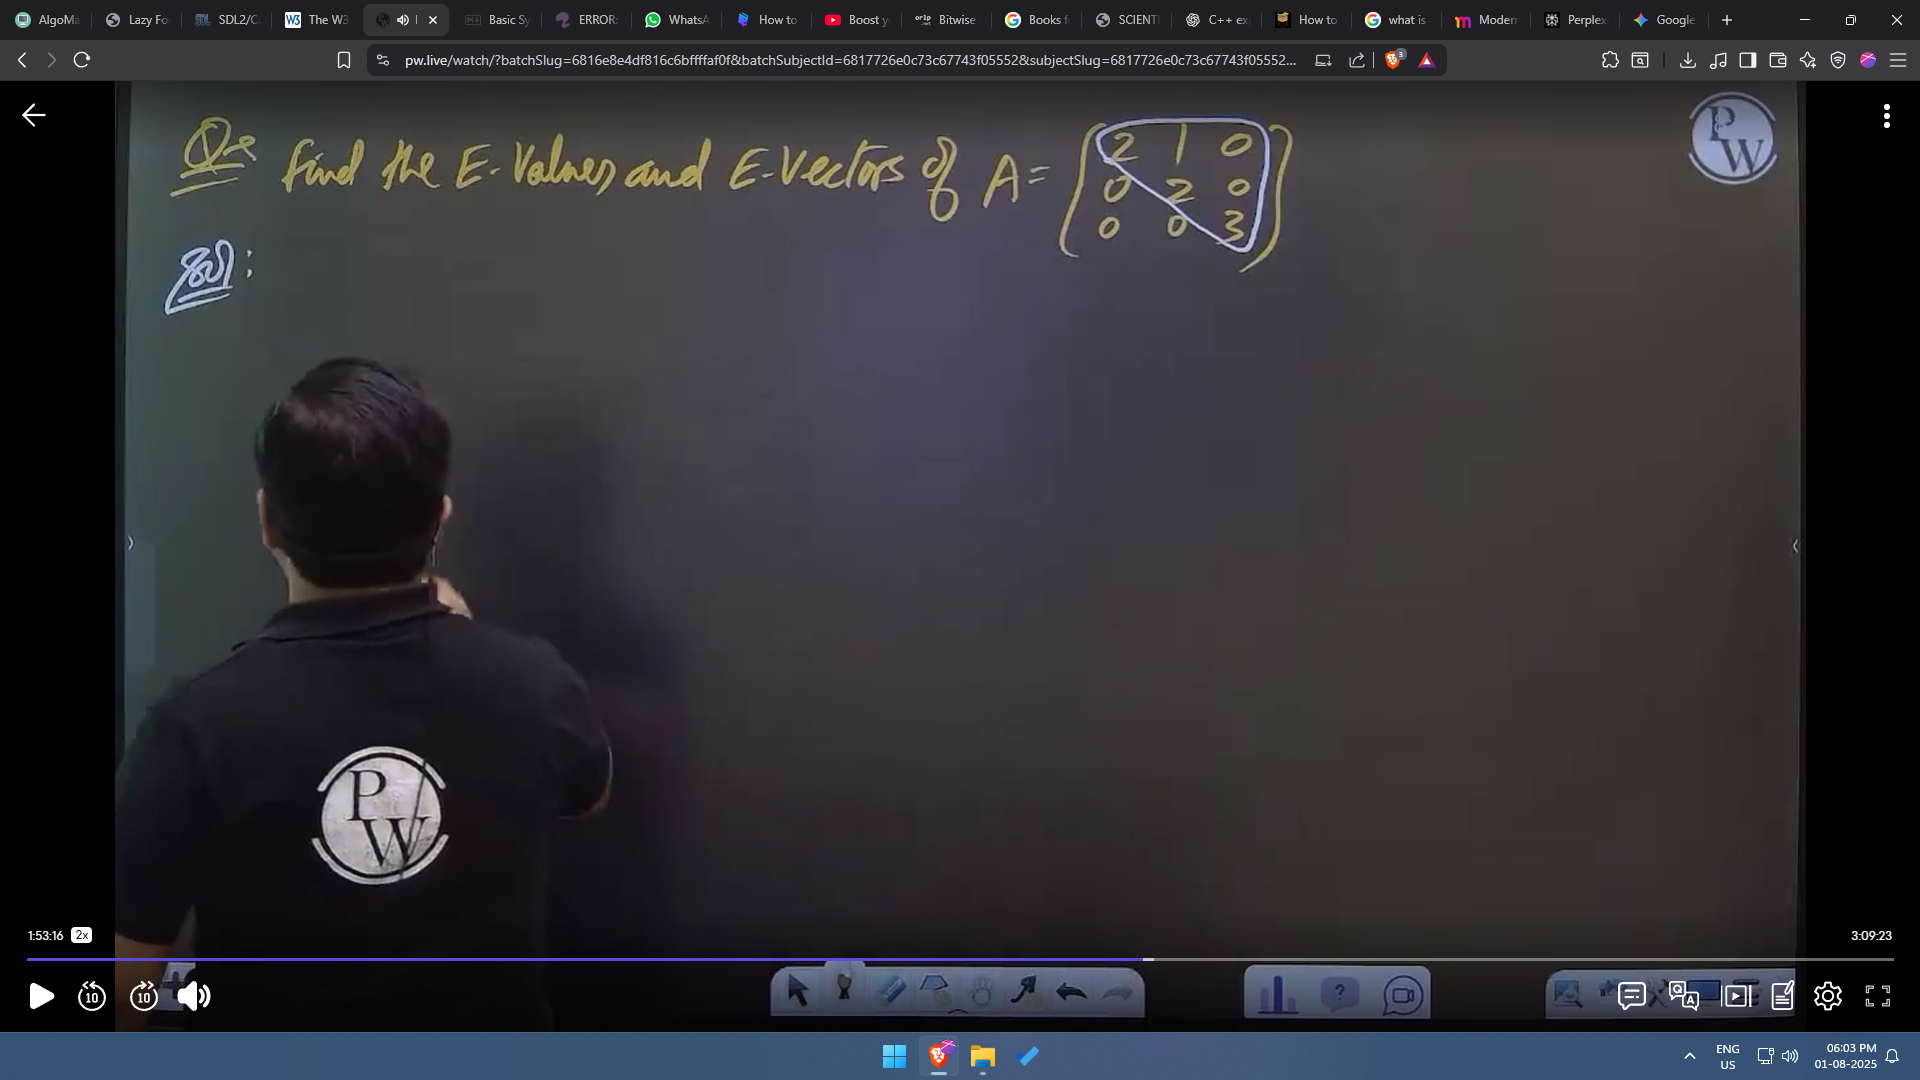 AlgoMa
Lazy Fo
SDL2/C
The W3
Basic Sy
ERROR:
WhatsA
How to
Boost y
Bitwise
Books f
SCIENTI
C++ ex
How to
what is
Modern
Perplex
Google
pw.live/watch/?batchSlug=6816e8e4df816c6bffffaf0f&batchSubjectId=6817726e0c73c67743f05552&subjectSlug=6817726e0c73c67743f05552...
3
Q. Find the E-Values and E-Vectors of A = 2 1 0
0 2 0
0 0 3
Sol:
PW
PW
1:53:16 2x
3:09:23
10
10
ENG
US
06:03 PM
01-08-2025